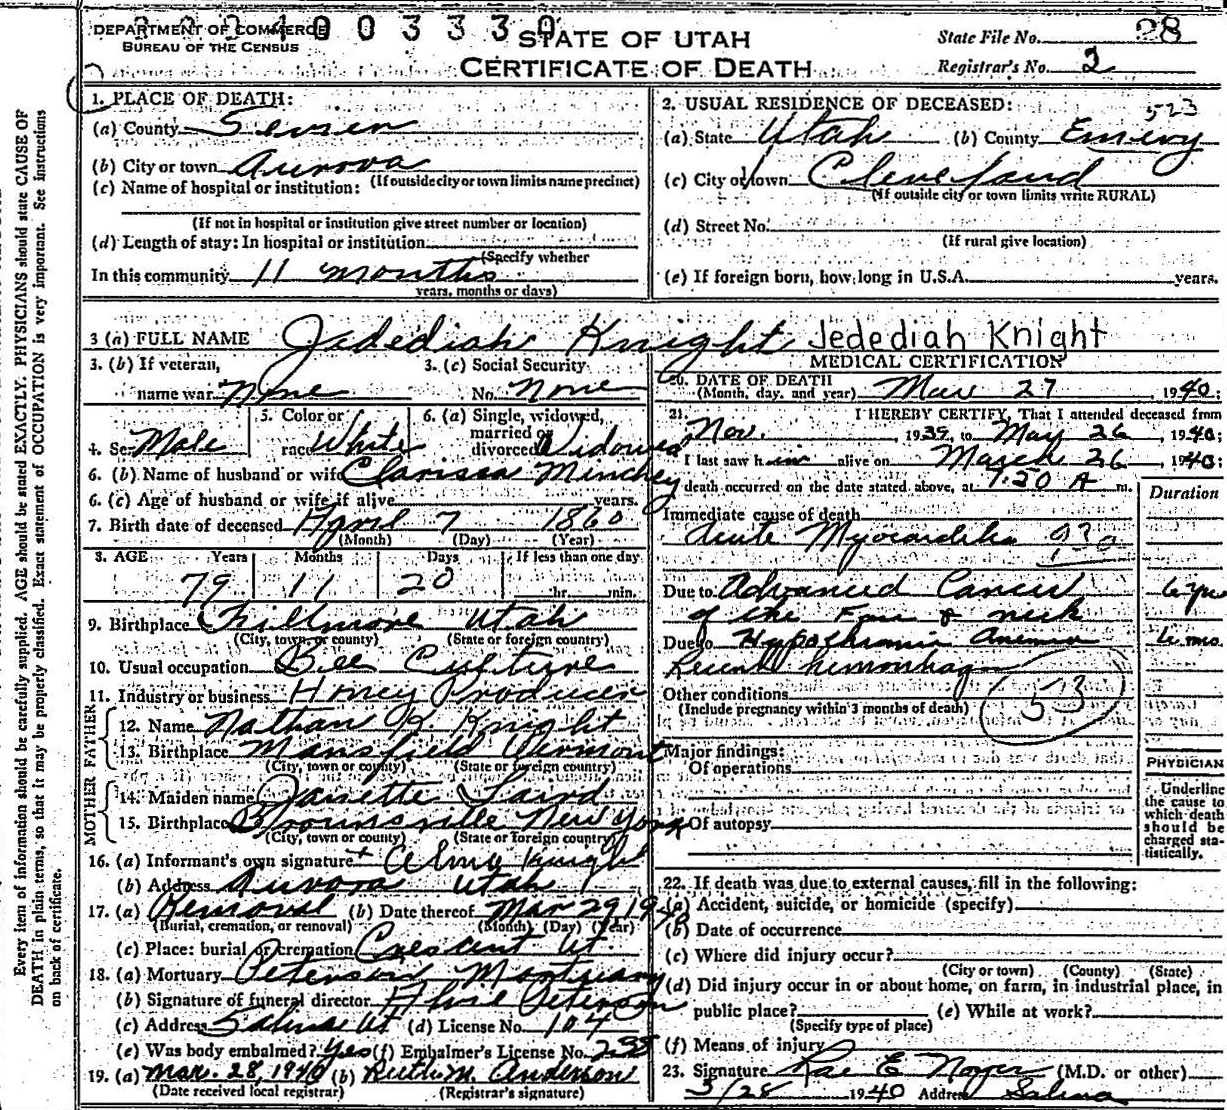 DEPARTMENT OF COMMERCE
BUREAU OF THE CENSUS
STATE OF UTAH
CERTIFICATE OF DEATH
State File No. 28
Registrar's No. 2
Every item of information should be carefully supplied. AGE should be stated EXACTLY. PHYSICIANS should state CAUSE OF
DEATH in plain terms, so that it may be properly classified. Exact statement of OCCUPATION is very important. See instructions
on back of certificate.
1. PLACE OF DEATH:
(a) County Sevier
(b) City or town Aurora
(If outside city or town limits name precinct)
(c) Name of hospital or institution:
(If not in hospital or institution give street number or location)
(d) Length of stay: In hospital or institution
(Specify whether
In this community 11 months
years, months or days)
2. USUAL RESIDENCE OF DECEASED:
523
(a) State Utah (b) County Emery
(c) City or town Cleveland
(If outside city or town limits write RURAL)
(d) Street No.
(If rural give location)
(e) If foreign born, how long in U.S.A. years.
3 (a) FULL NAME Jedediah Knight Jedediah Knight
3. (b) If veteran,
name war None
3. (c) Social Security
No. None
4. Sex Male
5. Color or
race White
6. (a) Single, widowed,
married or
divorced Widowed
6. (b) Name of husband or wife Clarissa Minchey
6. (c) Age of husband or wife if alive years.
7. Birth date of deceased April 7 1860
(Month) (Day) (Year)
8. AGE Years Months Days If less than one day
79 11 20 hr. min.
9. Birthplace Fillmore Utah
(City, town, or county) (State or foreign country)
10. Usual occupation Bee Culture
11. Industry or business Honey Producer
FATHER
12. Name Nathan K. Knight
13. Birthplace Mansfield Vermont
(City, town or county) (State or foreign country)
MOTHER
14. Maiden name Janette Laird
15. Birthplace New York
(City, town or county) (State or foreign country)
16. (a) Informant's own signature Alma Knight
(b) Address Aurora Utah
17. (a) Removal (b) Date thereof Mar 29 1940
(Burial, cremation, or removal) (Month) (Day) (Year)
(c) Place: burial or cremation Crescent Ut
18. (a) Mortuary Peterson Mortuary
(b) Signature of funeral director Peterson
(c) Address Salina Ut (d) License No. 104
(e) Was body embalmed? Yes (f) Embalmer's License No. 235
19. (a) Mar. 28, 1940 (b) Ruth N. Anderson
(Date received local registrar) (Registrar's signature)
MEDICAL CERTIFICATION
20. DATE OF DEATH
(Month, day, and year) Mar 27 1940;
21. I HEREBY CERTIFY, That I attended deceased from
Nov. , 1939, to May 26 , 1940;
I last saw him alive on March 26 , 1940;
death occurred on the date stated above, at 1:50 A m.
Duration
Immediate cause of death
Acute Myocarditis 93a
Due to Advanced Cancer
of the Face & neck
Due to Hypochromic Anemia 6 mos.
Recent hemorrhage
53
Other conditions
(Include pregnancy within 3 months of death)
Major findings:
Of operations
Of autopsy
PHYSICIAN
Underline
the cause to
which death
should be
charged sta-
tistically.
22. If death was due to external causes, fill in the following:
(a) Accident, suicide, or homicide (specify)
(b) Date of occurrence
(c) Where did injury occur?
(City or town) (County) (State)
(d) Did injury occur in or about home, on farm, in industrial place, in
public place? (e) While at work?
(Specify type of place)
(f) Means of injury
23. Signature Rae E. Noyes (M.D. or other)
3/28 1940 Address Salina